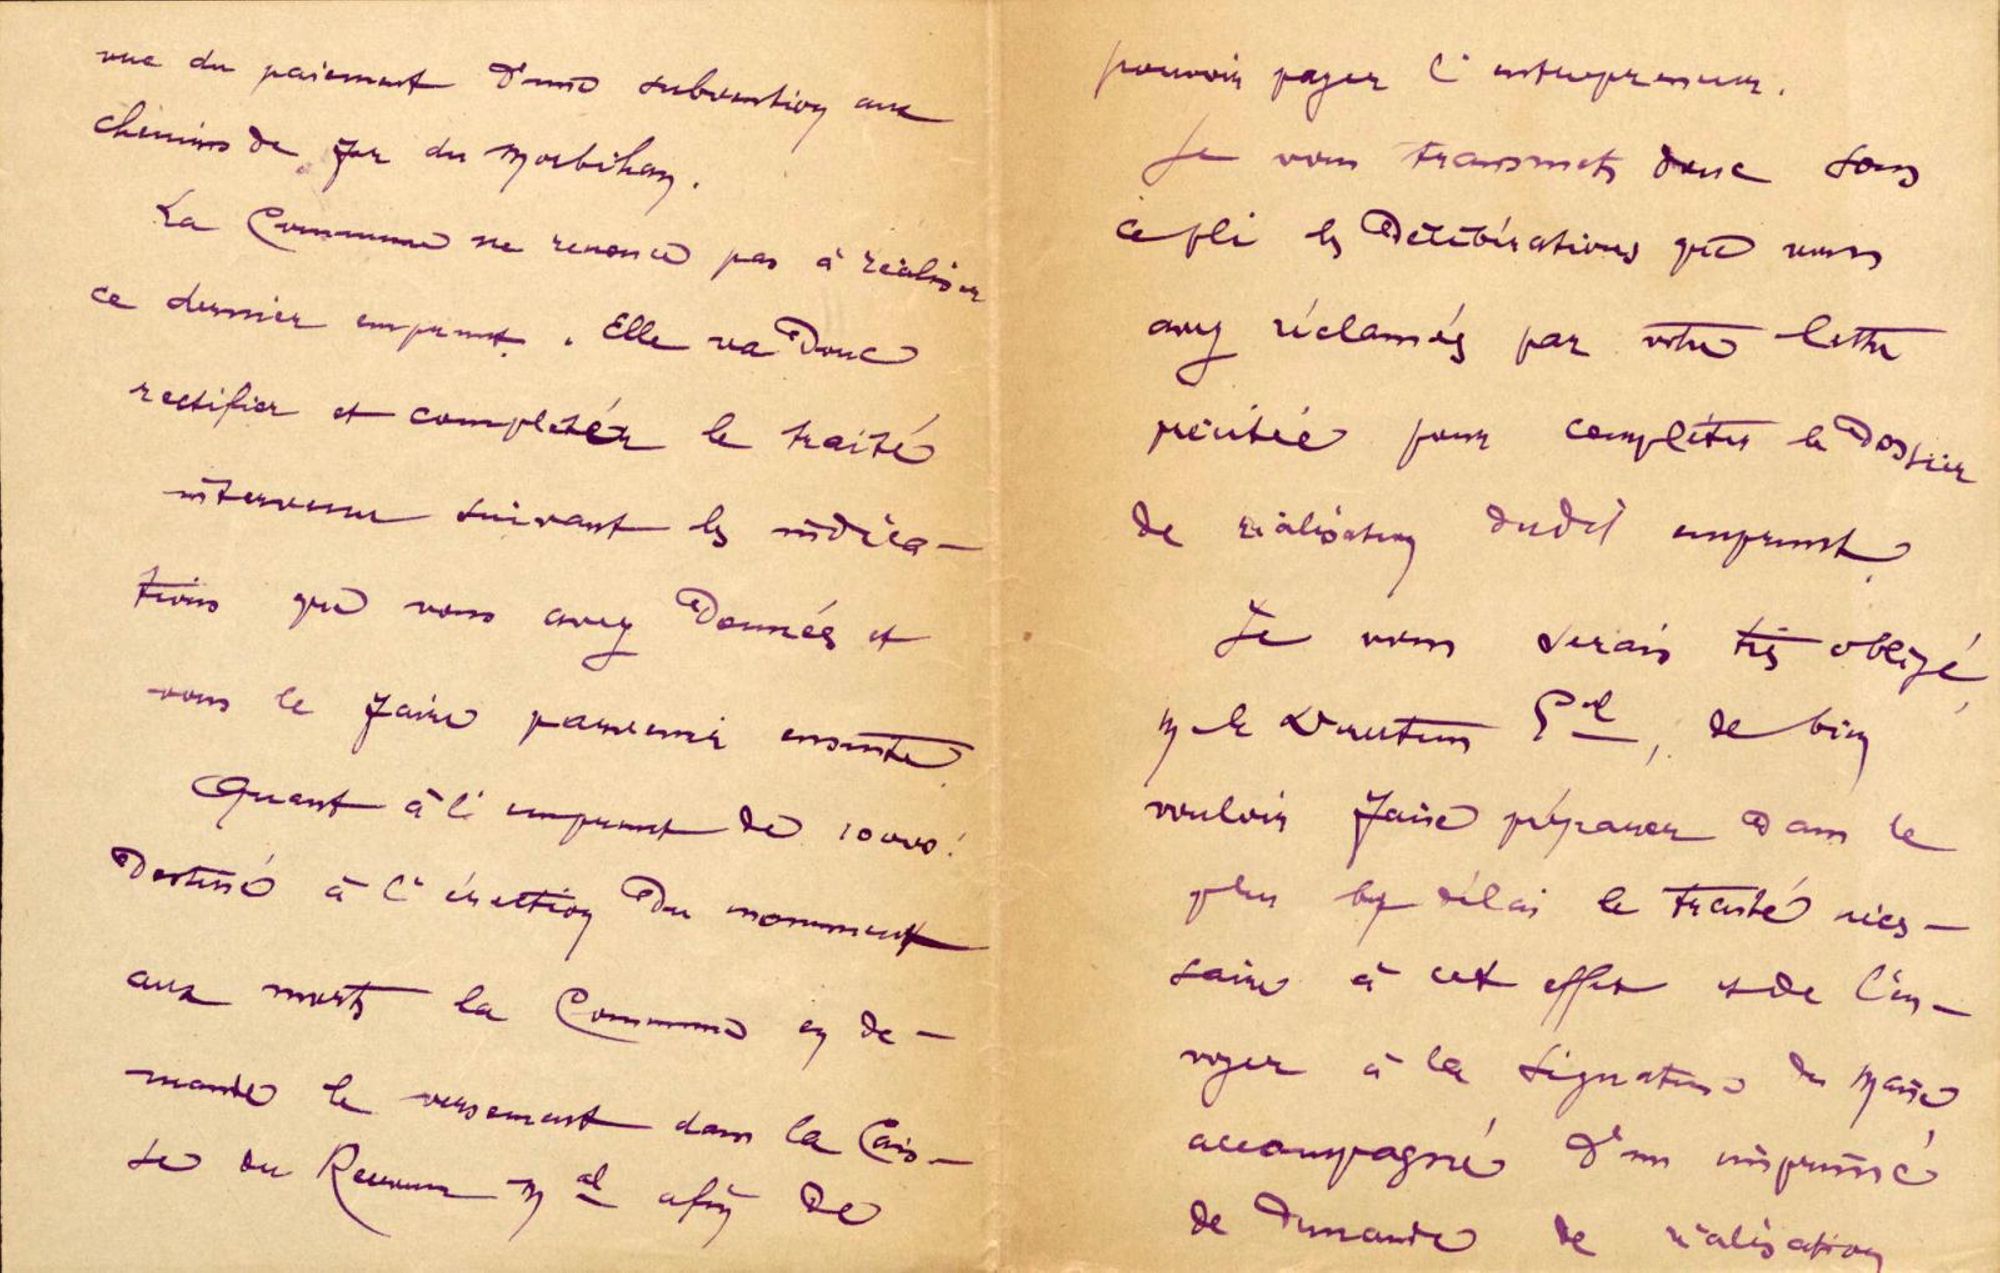 vue du paiement d'une subvention aux
chemins de fer du Morbihan.
La Commune ne renonce pas à réaliser
ce dernier emprunt. Elle va donc
rectifier et compléter le traité
intervenu suivant les indica-
tions que vous avez données et
vous le faire parvenir ensuite.
Quant à l'emprunt de 10000f
destiné à l'érection du monument
aux morts la Commune en de-
mande le versement dans la Cais-
se du Receveur Mal afin de
pouvoir payer l'entrepreneur.
Je vous transmets donc sous
ce pli les délibérations que vous
avez réclamés par votre lettre
précitée pour compléter le dossier
de réalisation dudit emprunt.
Je vous serais très obligé,
M le Directeur Gal, de bien
vouloir faire préparer dans le
plus bref délai le traité néces-
saire à cet effet et de l'en-
voyer à la signature du Maire
accompagné d'un imprimé
de demande de réalisation